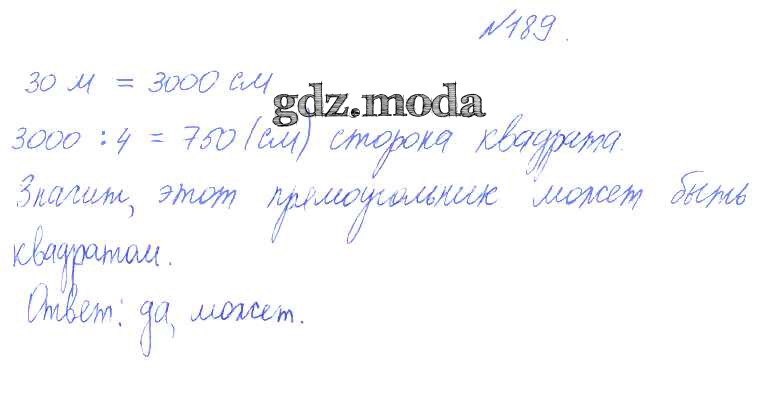 №189.
30 м = 3000 см
gdz.moda
3000 : 4 = 750 (см) сторона квадрата.
Значит, этот прямоугольник может быть
квадратом.
Ответ: да, может.